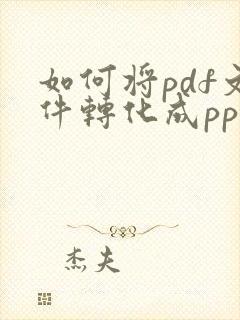 如何将pdf文
件轉化成pp
杰夫